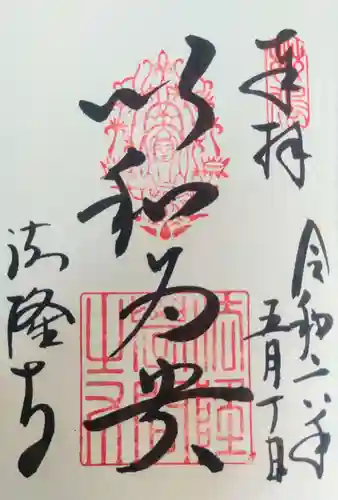 奉拝
令和二年
五月丁日
以和為貴
法隆寺